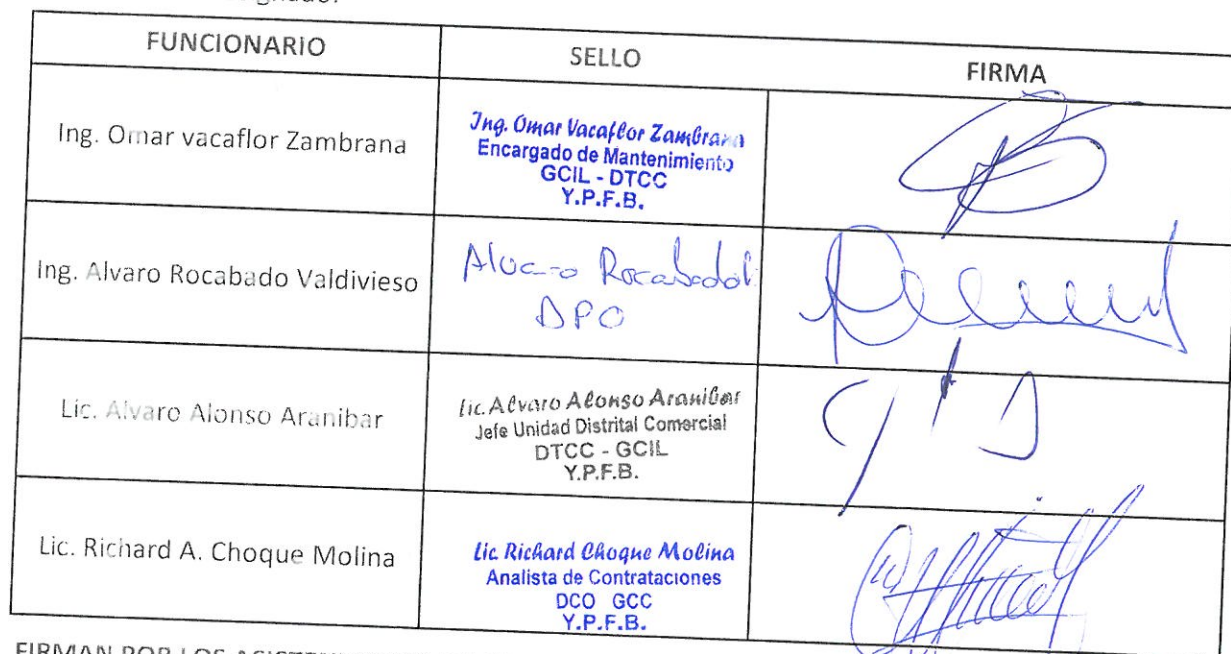 FUNCIONARIO SELLO FIRMA
Ing. Omar vacaflor Zambrana
Ing. Omar Vacaflor Zambrana
Encargado de Mantenimiento
GCIL - DTCC
Y.P.F.B.
Ing. Alvaro Rocabado Valdivieso
Alvaro Rocabado
DPO
Lic. Alvaro Alonso Aranibar
Lic. Alvaro Alonso Aranibar
Jefe Unidad Distrital Comercial
DTCC - GCIL
Y.P.F.B.
Lic. Richard A. Choque Molina
Lic Richard Choque Molina
Analista de Contrataciones
DCO GCC
Y.P.F.B.
FIRMAN POR LOS